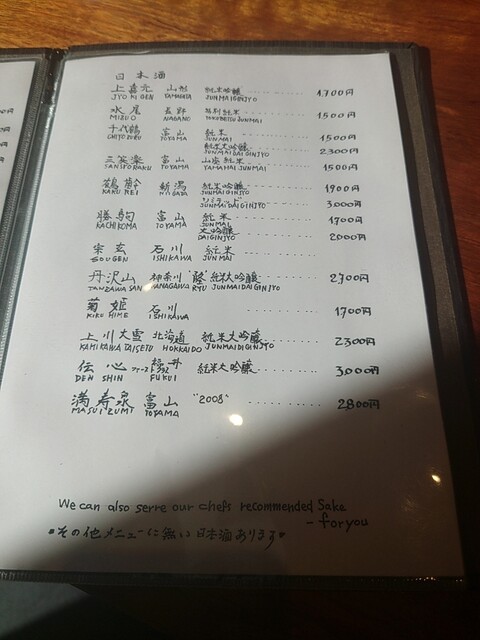 日本酒
上喜元 山形 純米吟醸 ········ 1,700円
JYO KI GEN YAMAGATA JUNMAIGINJYO
水尾 長野 特別純米 ········ 1500円
MIZUO NAGANO TOKUBETSU JUNMAI
千代鶴 富山 純米 ········ 1500円
CHIYOZURU TOYAMA JUNMAI
純米大吟醸 ········ 2300円
JUNMAIDAIGINJYO
三笑楽 富山 山廃純米 ········ 1500円
SANSYORAKU TOYAMA YAMAHAI JUNMAI
鶴齢 新潟 純米吟醸 ········ 1900円
KAKU REI NIIGATA JUNMAIGINJYO
········ 3,000円
JUNMAIDAIGINJYO
勝駒 富山 純米 ········ 1700円
KACHIKOMA TOYAMA JUNMAI
大吟醸 ········ 2000円
DAIGINJYO
宗玄 石川 純米 ········
SOUGEN ISHIKAWA JUNMAI
丹沢山 神奈川 純米大吟醸 ········ 2,700円
TANZAWA SAN KANAGAWA RYU JUNMAIDAIGINJYO
菊姫 石川 ········ 1700円
KIKU HIME ISHIKAWA
上川大雪 北海道 純米大吟醸 ········ 2300円
KAMIKAWA TAISETU HOKKAIDO JUNMAIDIGINJYO
伝心 福井 純米大吟醸 ········ 3,000円
DEN SHIN FUKUI
満寿泉 富山 "2008" ········ 2800円
MASUIZUMI TOYAMA
We can also serve our chefs recommended Sake
- for you
*その他メニューに無い日本酒あります*